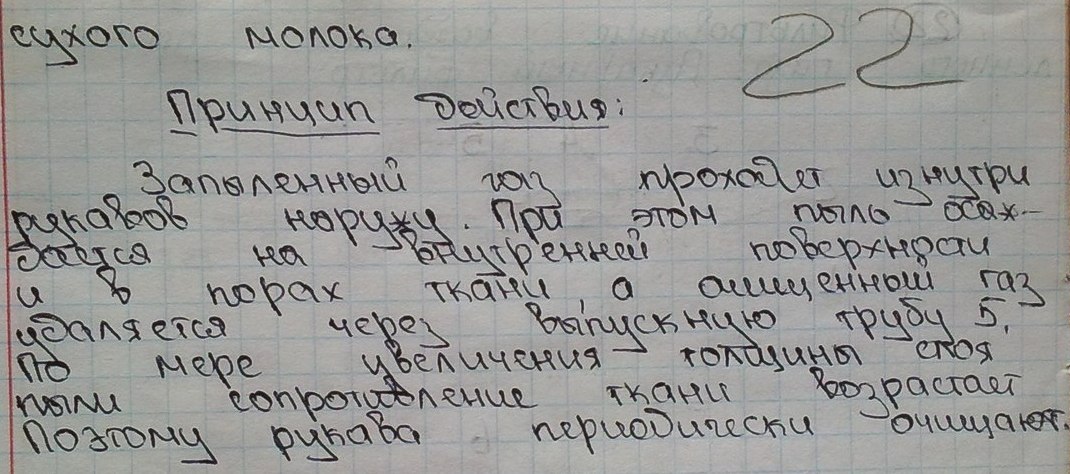 сухого молока.
22
Принцип действия:
Запыленный газ проходит изнутри
рукавов наружу. При этом пыль осаж-
дается на внутренней поверхности
и в порах ткани, а очищенный газ
удаляется через выпускную трубу 5.
По мере увеличения толщины слоя
пыли сопротивление ткани возрастает
Поэтому рукава периодически очищают.